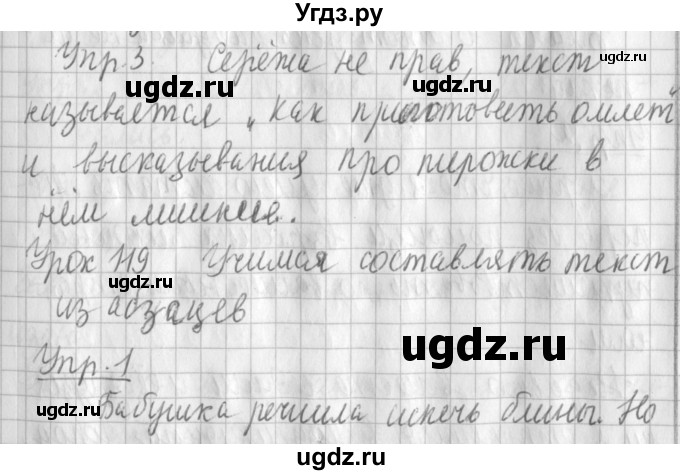 Угдз.ру
Упр.3. Серёжа не прав, текст
называется „Как приготовить омлет"
и высказывания про пирожки в
нём лишние.
Урок 119 Учимся составлять текст
из абзацев
Упр.1
Бабушка решила испечь блины. Но
ugdz.ru
ugdz.ru
ugdz.ru
ugdz.ru
ugdz.ru
ugdz.ru
ugdz.ru
ugdz.ru
ugdz.ru